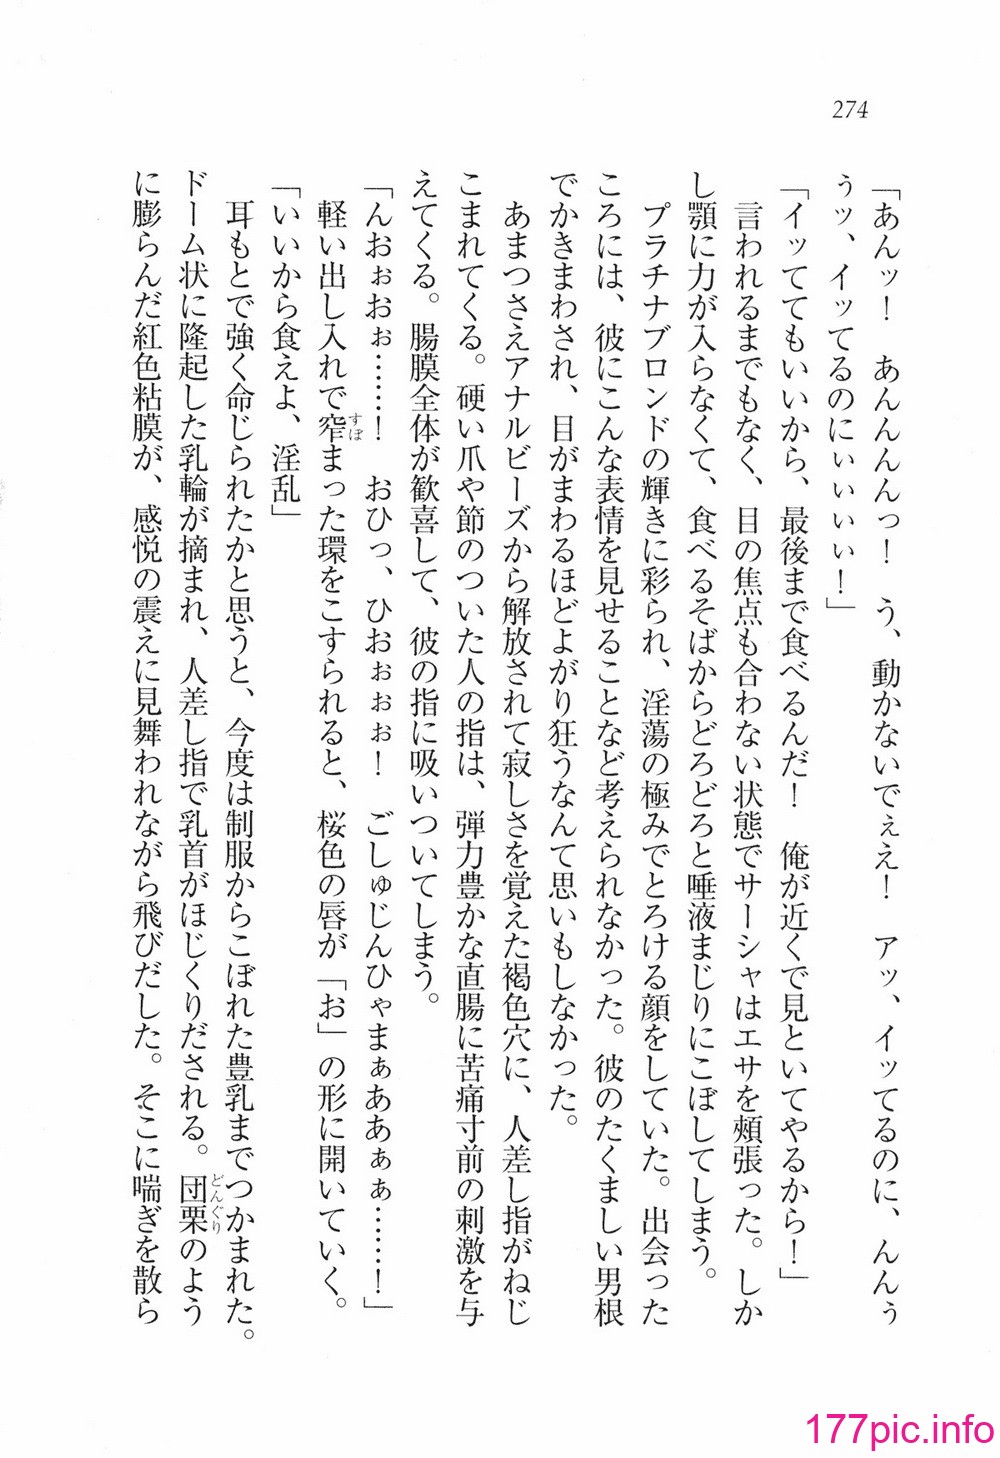 274
「あんッ！　あんんんっ！　う、動かないでぇえ！　アッ、イッてるのに、んんぅ
ぅッ、イッてるのにぃぃぃぃ！」
「イッててもいいから、最後まで食べるんだ！　俺が近くで見といてやるから！」
　言われるまでもなく、目の焦点も合わない状態でサーシャはエサを頬張った。しか
し顎に力が入らなくて、食べるそばからどろどろと唾液まじりにこぼしてしまう。
　プラチナブロンドの輝きに彩られ、淫蕩の極みでとろける顔をしていた。出会った
ころには、彼にこんな表情を見せることなど考えられなかった。彼のたくましい男根
でかきまわされ、目がまわるほどよがり狂うなんて思いもしなかった。
　あまつさえアナルビーズから解放されて寂しさを覚えた褐色穴に、人差し指がねじ
こまれてくる。硬い爪や節のついた人の指は、弾力豊かな直腸に苦痛寸前の刺激を与
えてくる。腸膜全体が歓喜して、彼の指に吸いついてしまう。
「んおぉおぉ……！　おひっ、ひおぉぉぉ！　ごしゅじんひゃまぁああぁぁ……！」
　軽い出し入れで窄まった環をこすられると、桜色の唇が「お」の形に開いていく。
すぼ
「いいから食えよ、淫乱」
　耳もとで強く命じられたかと思うと、今度は制服からこぼれた豊乳までつかまれた。
ドーム状に隆起した乳輪が摘まれ、人差し指で乳首がほじくりだされる。団栗のよう
どんぐり
に膨らんだ紅色粘膜が、感悦の震えに見舞われながら飛びだした。そこに喘ぎを散ら
177pic.info